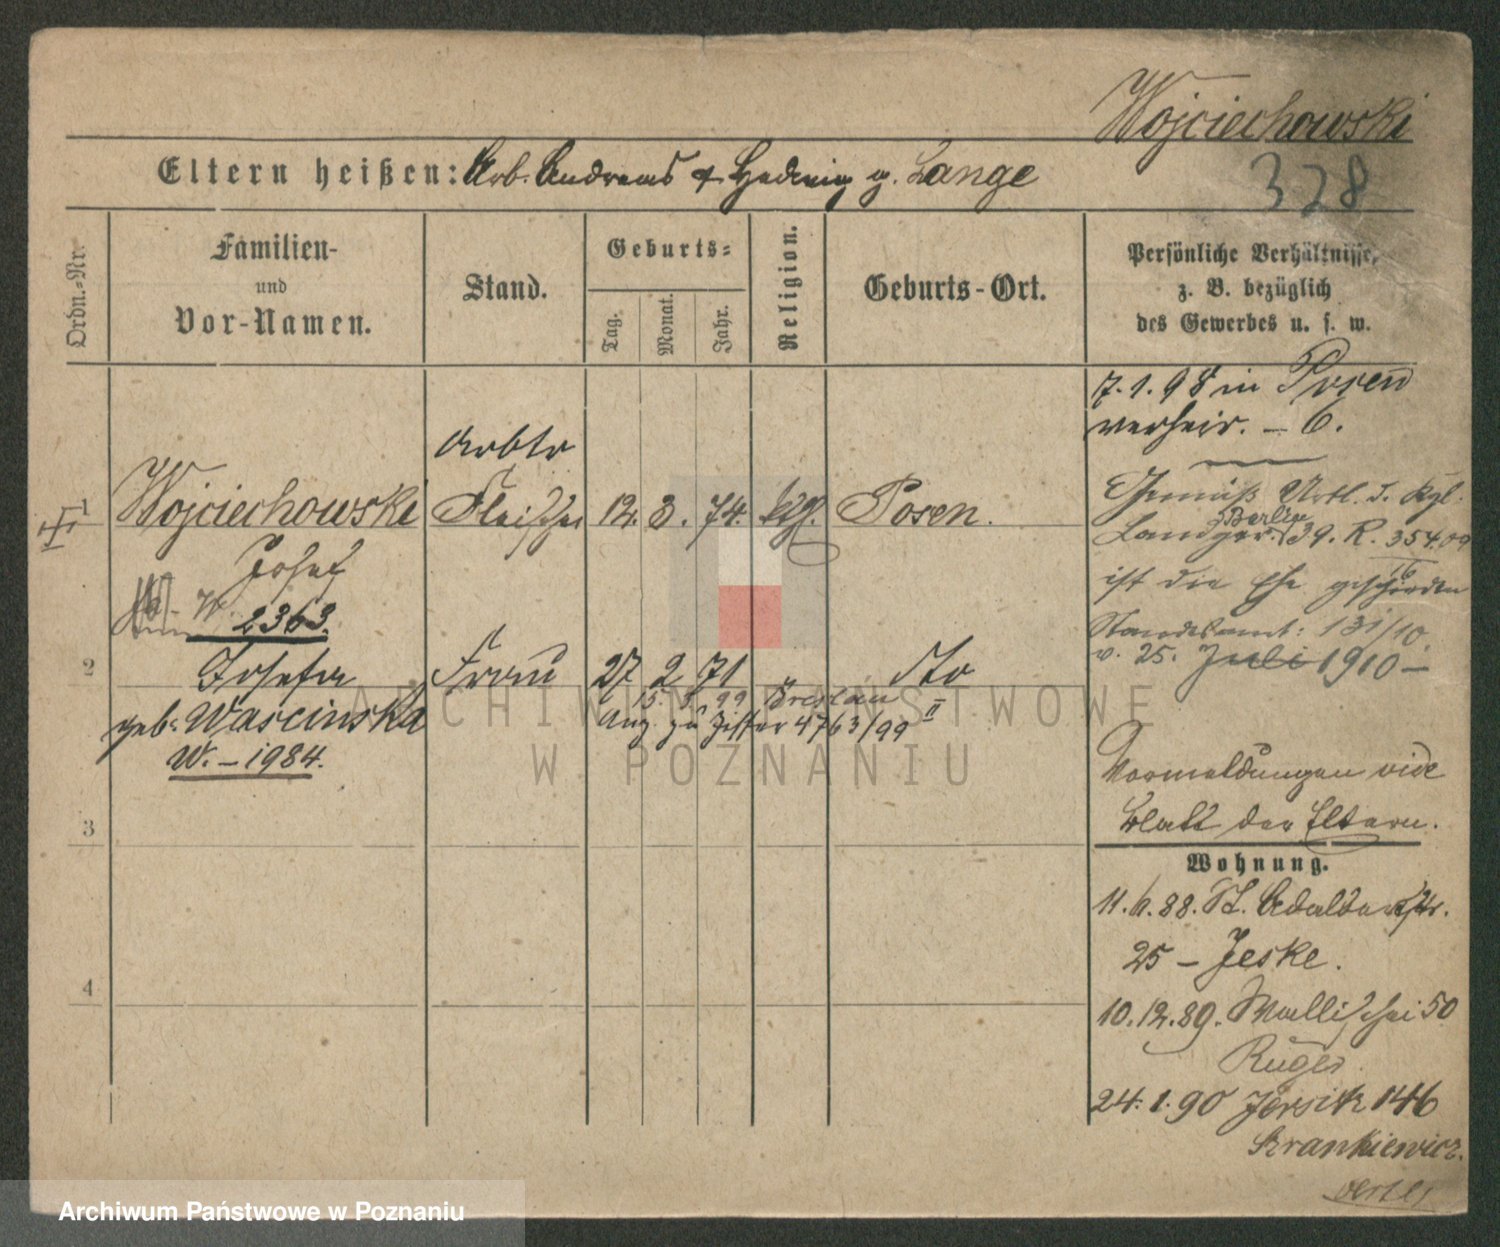 Wojciechowski
328
Eltern heißen: Arb. Andreas & Hedwig g. Lange
Ordn.-Nr.
Familien-
und
Vor-Namen.
Stand.
Geburts-
Tag.
Monat.
Jahr.
Religion.
Geburts-Ort.
Persönliche Verhältnisse,
z. B. bezüglich
des Gewerbes u. s. w.
7.1.98 in Posen
verheir. – 6.
Arbtr
1 Wojciechowski Fleischer 12. 3. 74. kth. Posen.
Josef
2363.
Gemäß Urtl. d. Kgl.
Landger. Berlin 39. R. 354.09
16
ist die Ehe geschieden
Standesamt: 131/10
v. 25. Juli 1910 –
2 Josefa Frau 27 2 71 " dto
geb. Wascinska
W. – 1984.
15. 5. 99 Breslau II
Anz. zu Ziffer 4763/99
Vormeldungen vide
Blatt der Eltern.
3
Wohnung.
11.6.88. St. Adalbertstr.
25 – Jeske.
4
10.12.89. Wallischei 50
Ruges.
24.1.90 Jersitz 146
Skrankiewicz.
ARCHIWUM PAŃSTWOWE
W POZNANIU
Archiwum Państwowe w Poznaniu